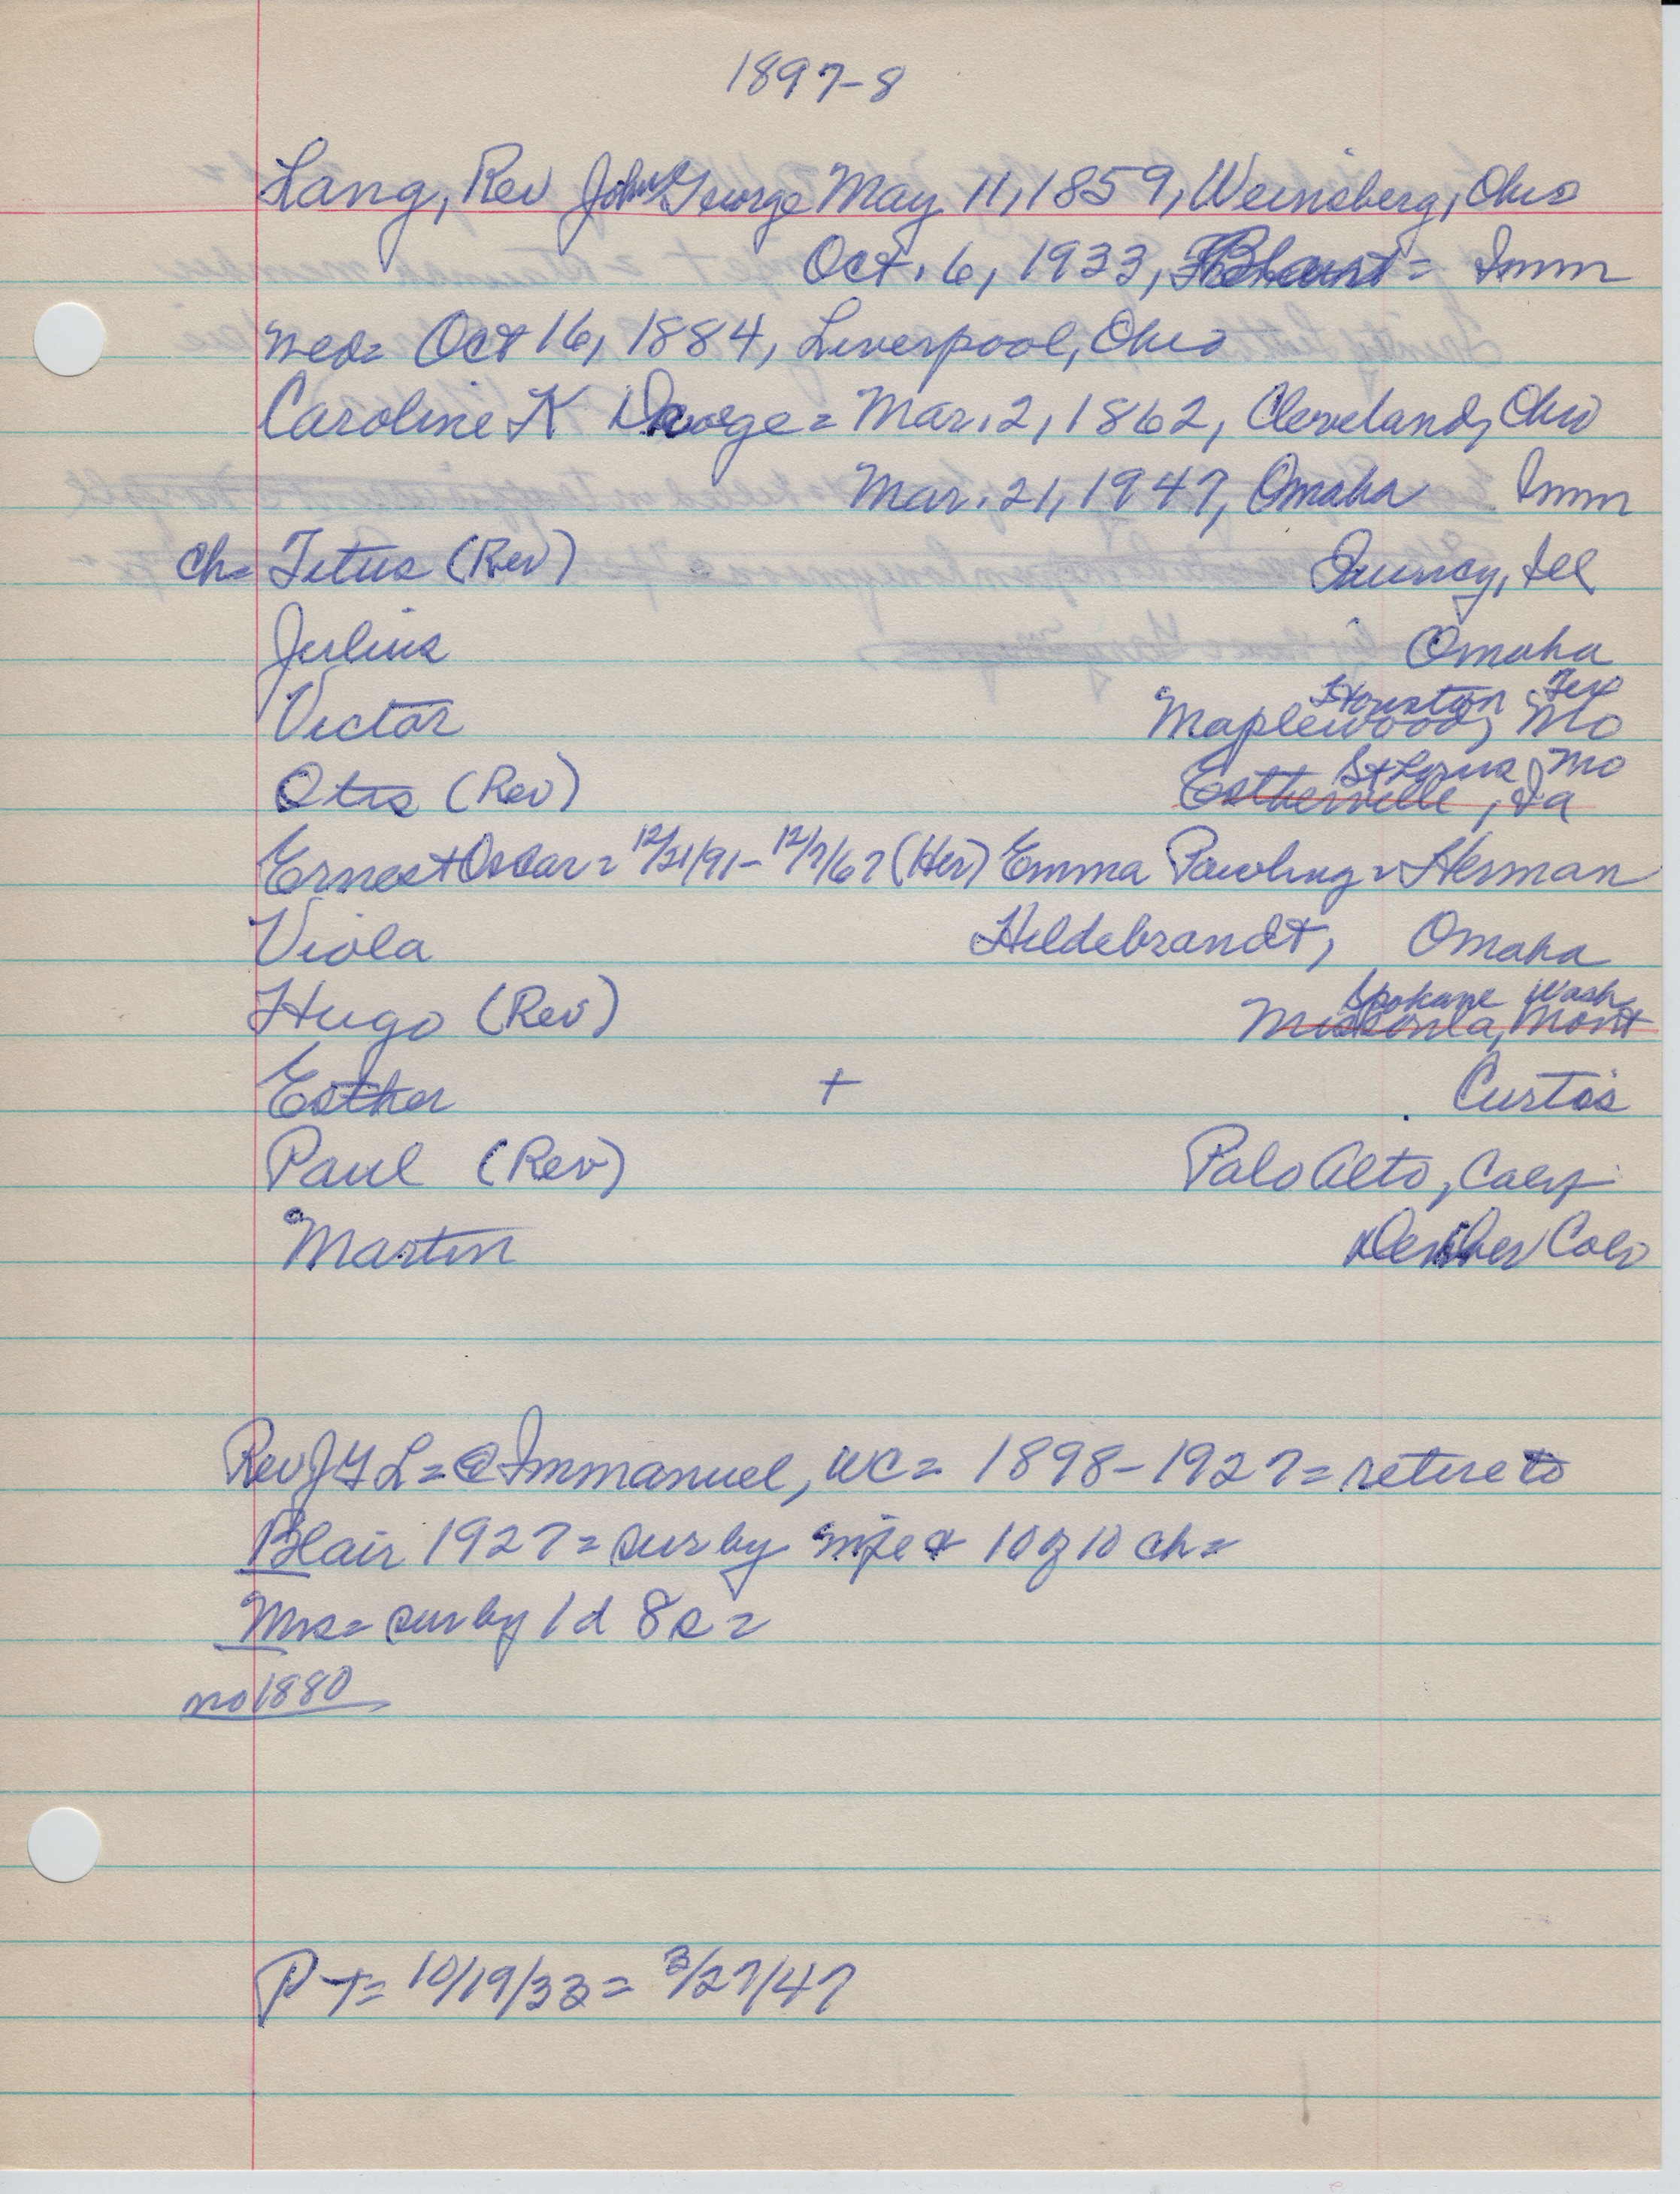 1897-8
Lang, Rev John George May 11, 1859, Weinsberg, Ohio
Oct. 6, 1933, = Imm
wed= Oct 16, 1884, Liverpool, Ohio
Caroline K Droege = Mar. 2, 1862, Cleveland, Ohio
Mar. 21, 1947, Omaha Imm
ch= Titus (Rev) Quincy, Ill
Julius Omaha
Houston Tex
Victor Maplewood, Mo
St Louis, Mo
Otis (Rev) Estherville, Ia
Ernest Oscar = 12/21/91- 12/7/67 (Her) Emma Pawling = Herman
Viola Hildebrandt, Omaha
Spokane Wash
Hugo (Rev) Missoula, Mont
Esther + Curtis
Paul (Rev) Palo Alto, Calif
Martin Denver Colo
Rev J G L = @ Immanuel, WC = 1898-1927 = retire to
Blair 1927 = sur by wife & 10 of 10 ch=
Mrs= sur by 1 d 8 s =
no 1880
P T= 10/19/33 = 3/27/47